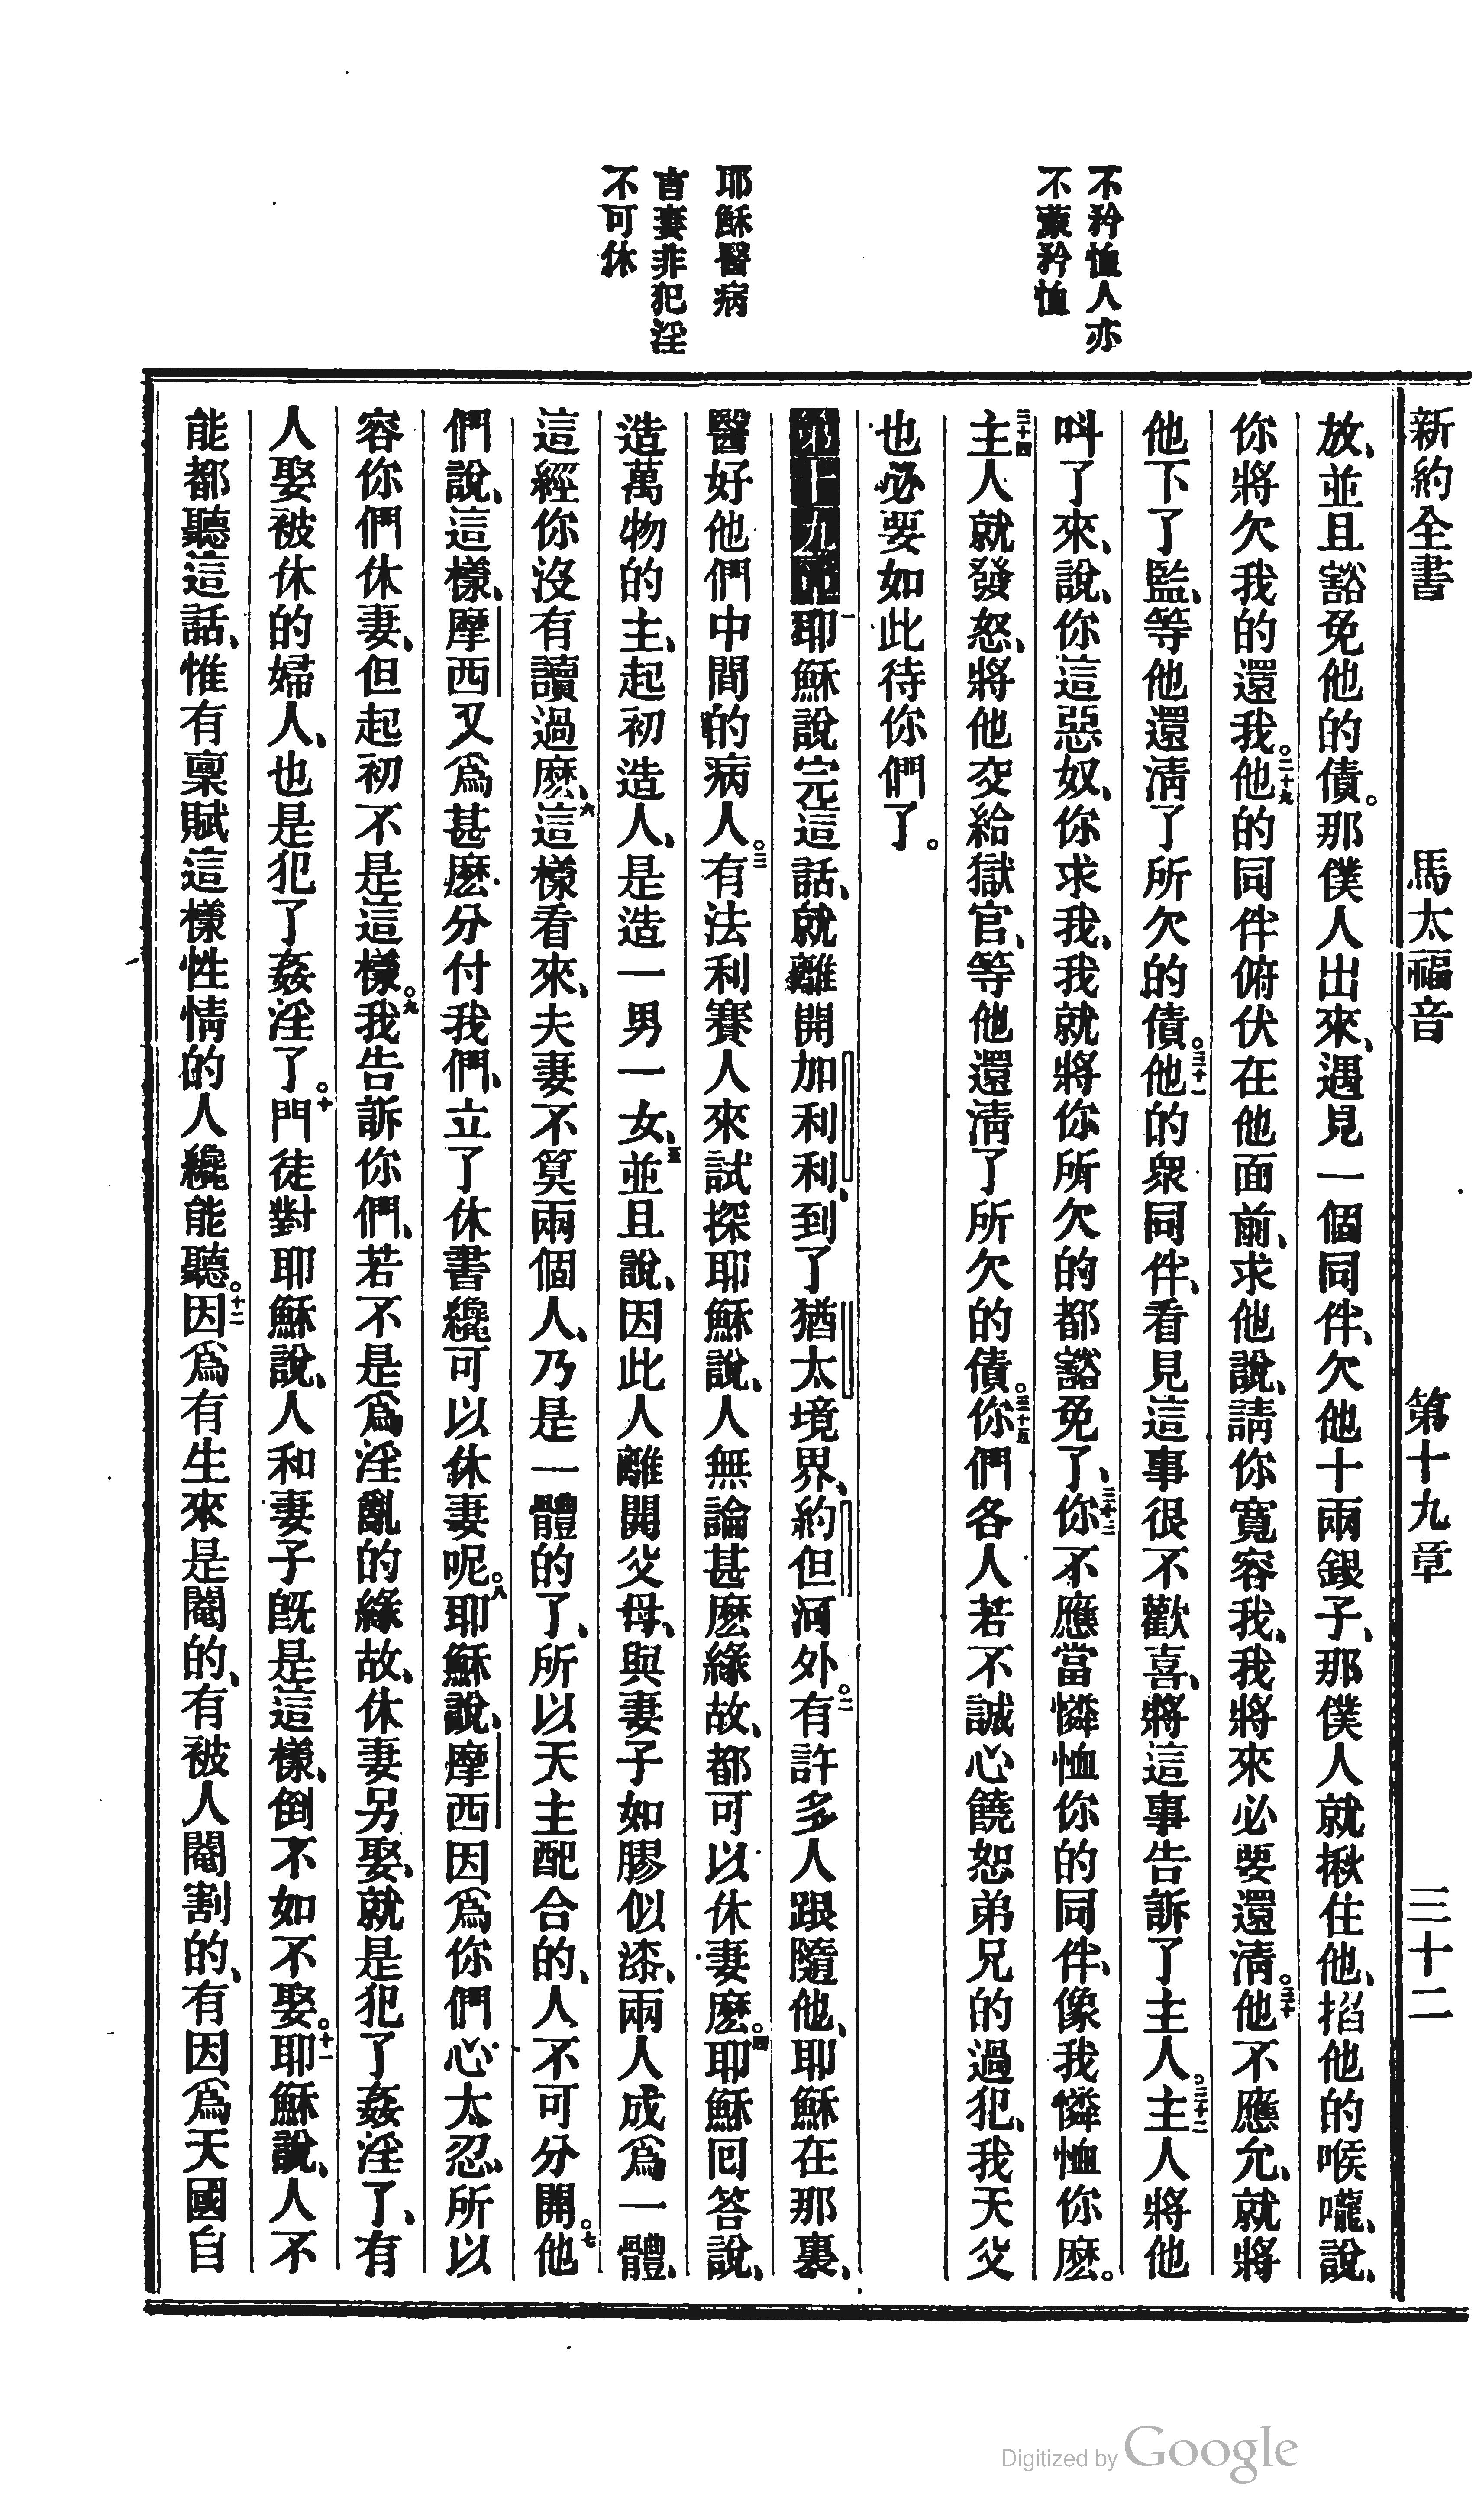 新約全書 馬太福音 第十九章 三十二
不矜恤人亦
不蒙矜恤
耶穌醫病
言妻非犯淫
不可休
放、並且豁免他的債。那僕人出來、遇見一個同伴、欠他十兩銀子、那僕人就揪住他、掐他的喉嚨、說、
你將欠我的還我。二十九他的同伴俯伏在他面前、求他說、請你寬容我、我將來必要還淸。三十他不應允、就將
他下了監、等他還淸了所欠的債。三十一他的衆同伴、看見這事很不歡喜、將這事吿訴了主人。三十二主人將他
呌了來、說、你這惡奴、你求我、我就將你所欠的都豁免了、三十三你不應當憐恤你的同伴、像我憐恤你麽。
三十四主人就發怒、將他交給獄官、等他還淸了所欠的債。三十五你們各人若不誠心饒恕弟兄的過犯、我天父
也必要如此待你們了。
第十九章一耶穌說完這話、就離開加利利、到了猶太境界、約但河外。二有許多人跟隨他、耶穌在那裏、
醫好他們中間的病人。三有法利賽人來試探耶穌說、人無論甚麽緣故、都可以休妻麽。四耶穌回答說、
造萬物的主、起初造人、是造一男一女、五並且說、因此人離開父母、與妻子如膠似漆、兩人成爲一體、
這經你沒有讀過麽、六這樣看來、夫妻不算兩個人、乃是一體的了、所以天主配合的、人不可分開。七他
們說、這樣、摩西又爲甚麽分付我們、立了休書纔可以休妻呢。八耶穌說、摩西因爲你們心太忍、所以
容你們休妻、但起初不是這樣。九我吿訴你們、若不是爲淫亂的緣故、休妻另娶、就是犯了姦淫了、有
人娶被休的婦人、也是犯了姦淫了。十門徒對耶穌說、人和妻子旣是這樣、倒不如不娶。十一耶穌說、人不
能都聽這話、惟有稟賦這樣性情的人纔能聽。十二因爲有生來是閹的、有被人閹割的、有因爲天國自
Digitized by Google